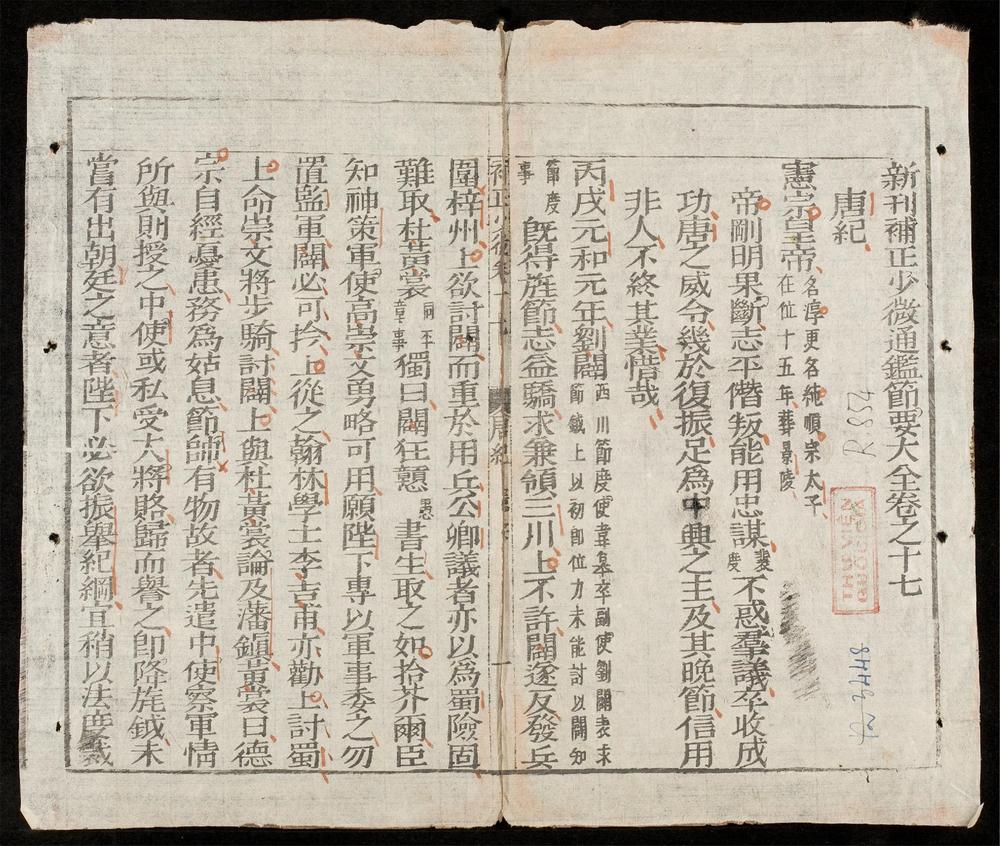 新刊補正少微通鑑節要大全卷之十七
唐紀
憲宗皇帝名淳更名純順宗太子
在位十五年葬景陵
帝剛明果斷志平僭叛能用忠謀裴
度不惑羣議卒收成
功唐之威令幾於復振足爲中興之主及其晚節信用
非人不終其業惜哉
丙戌元和元年劉闢西川節度使韋皋卒副使劉闢表求
節鉞上以初即位力未能討以闢知
節度
事既得旌節志益驕求兼領三川上不許闢遂反發兵
圍梓州上欲討闢而重於用兵公卿議者亦以爲蜀險固
難取杜黃裳同平
章事獨曰闢狂戇愚書生取之如拾芥爾臣
知神策軍使高崇文勇略可用願陛下專以軍事委之勿
置監軍闢必可擒上從之翰林學士李吉甫亦勸上討蜀
上命崇文將步騎討闢上與杜黃裳論及藩鎮黃裳曰德
宗自經憂患務爲姑息節帥有物故者先遣中使察軍情
所與則授之中使或私受大將賂歸而譽之即降旄鉞未
嘗有出朝廷之意者陛下必欲振舉紀綱宜稍以法度裁
唐紀
R 554